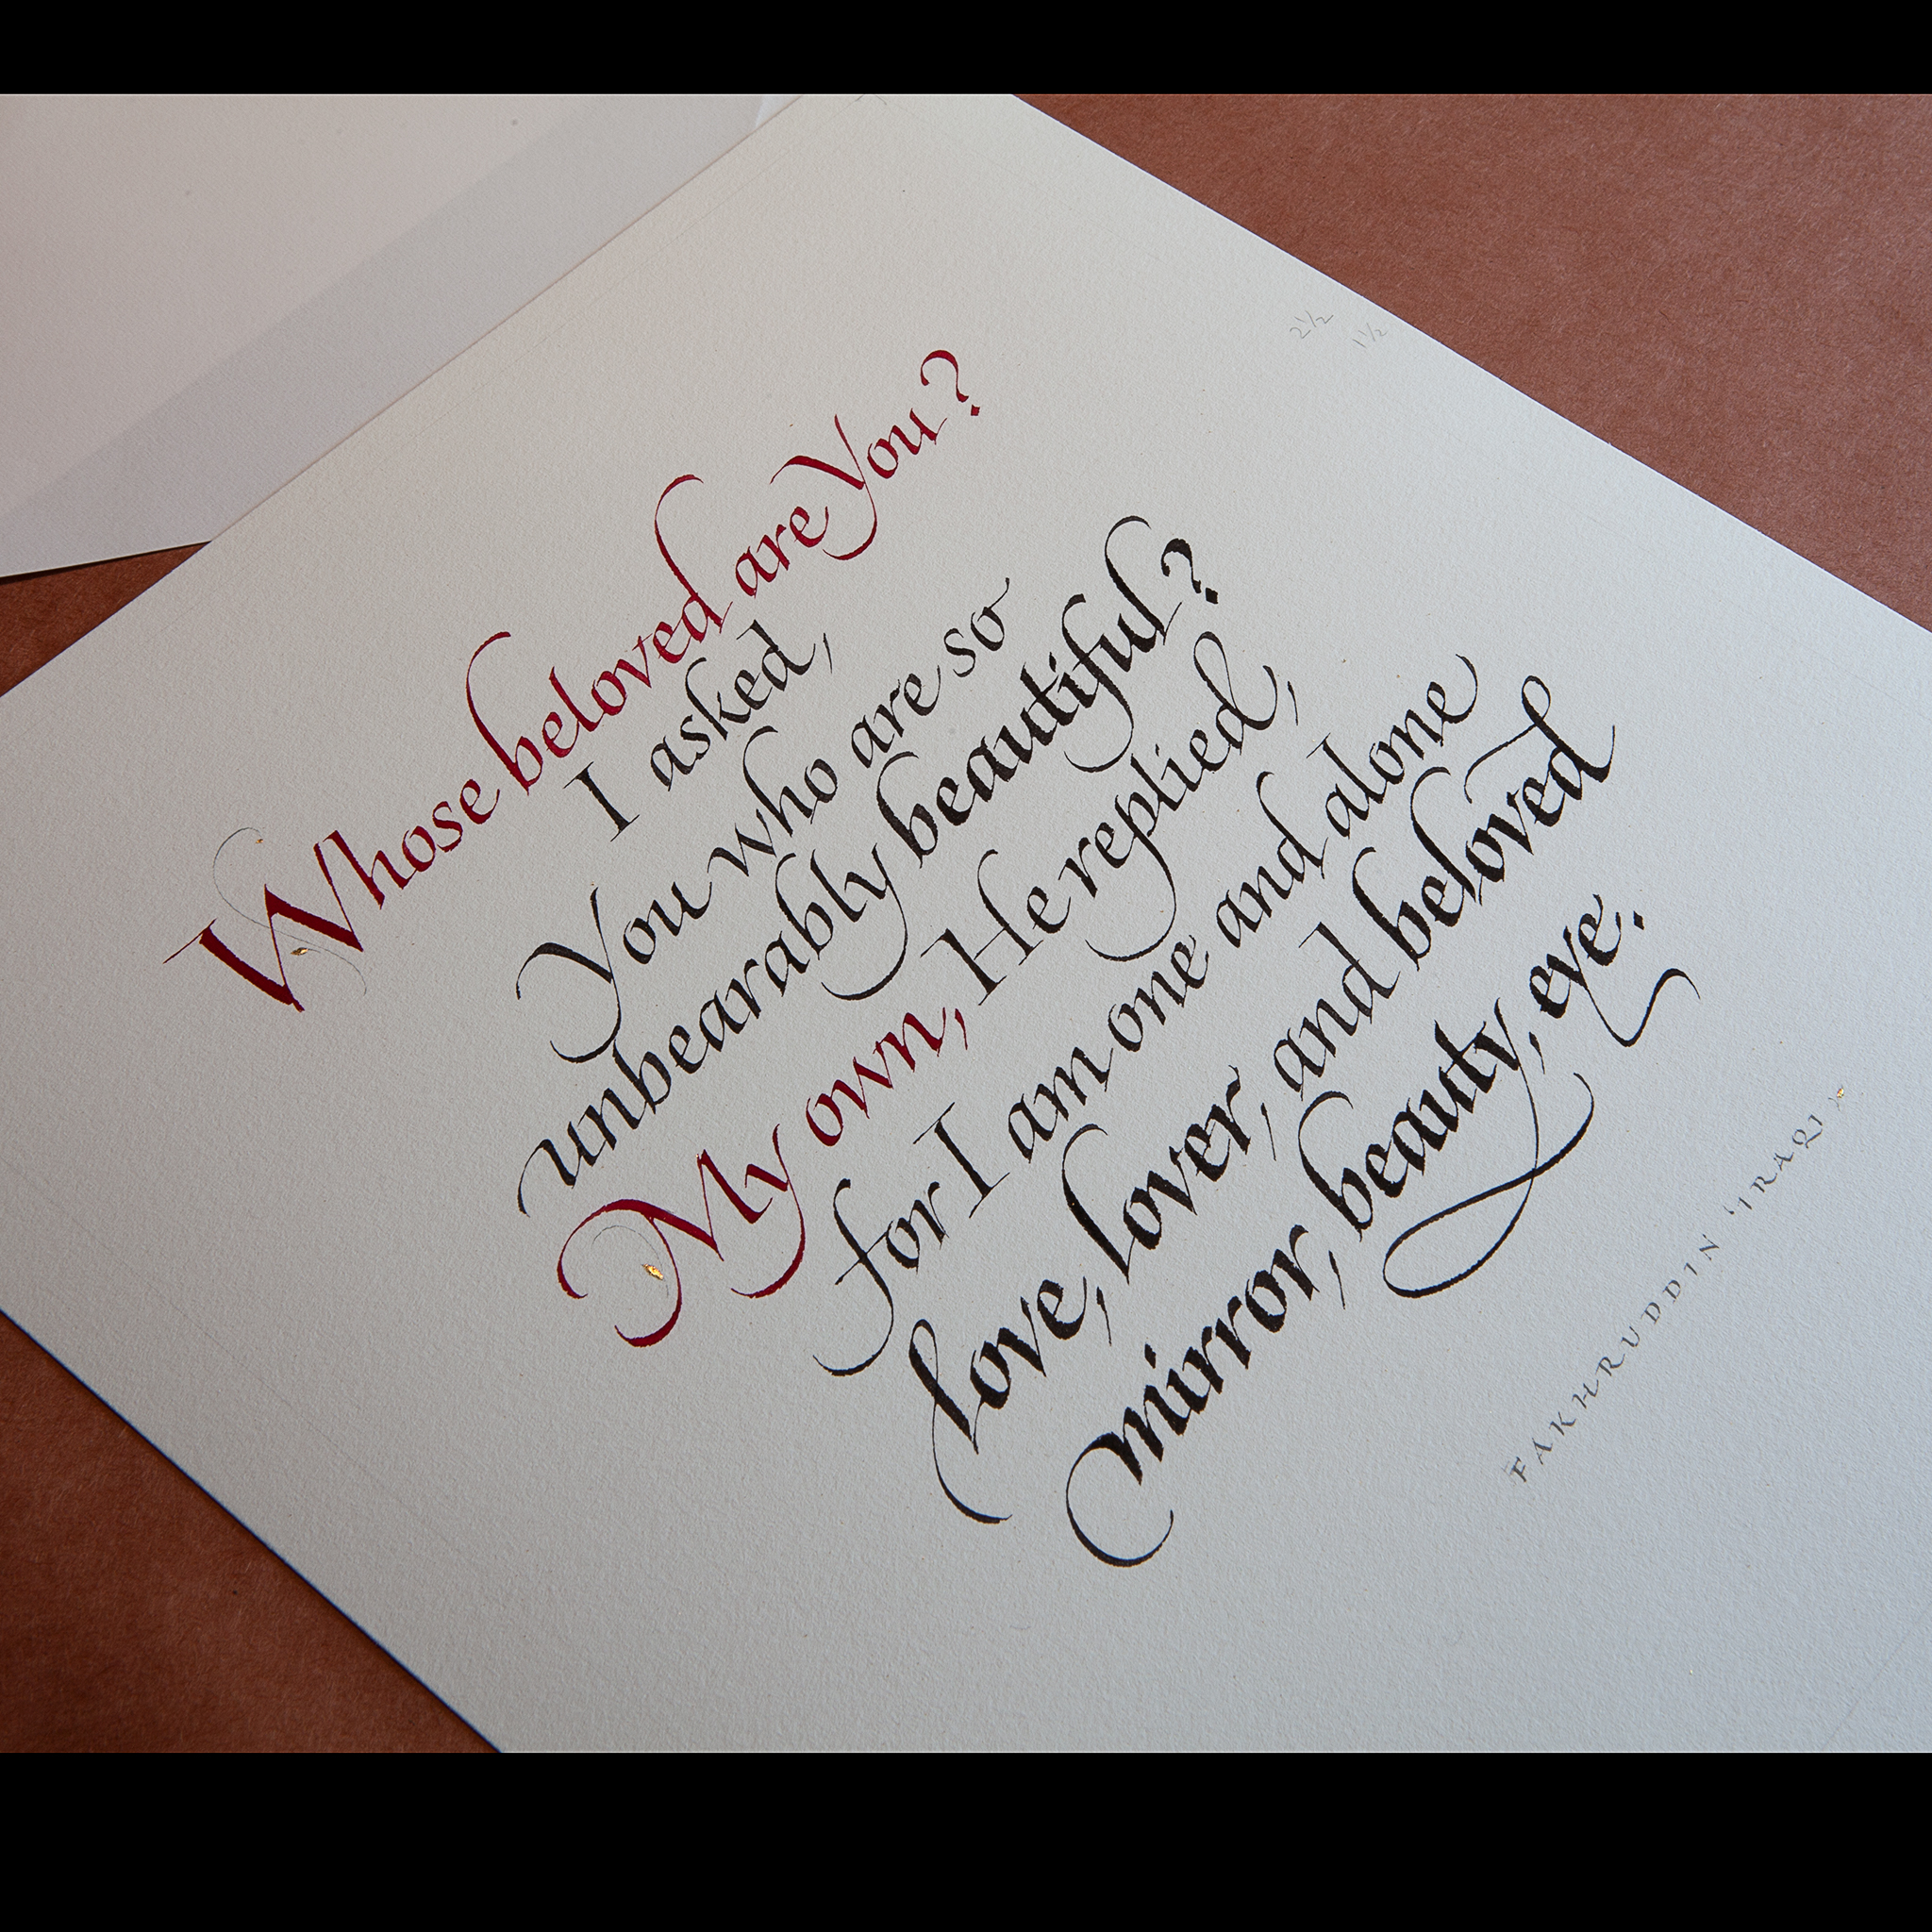 2 1/2 1 1/2
Whose beloved are You?
I asked,
You who are so
unbearably beautiful?
My own, He replied,
for I am one and alone
love, lover, and beloved
mirror, beauty, eye.
FAKHRUDDIN 'IRAQI